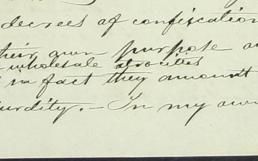 decrees of confiscation
their own purpose a
wholesale atrocities
in fact they amount
urdity. — In my own